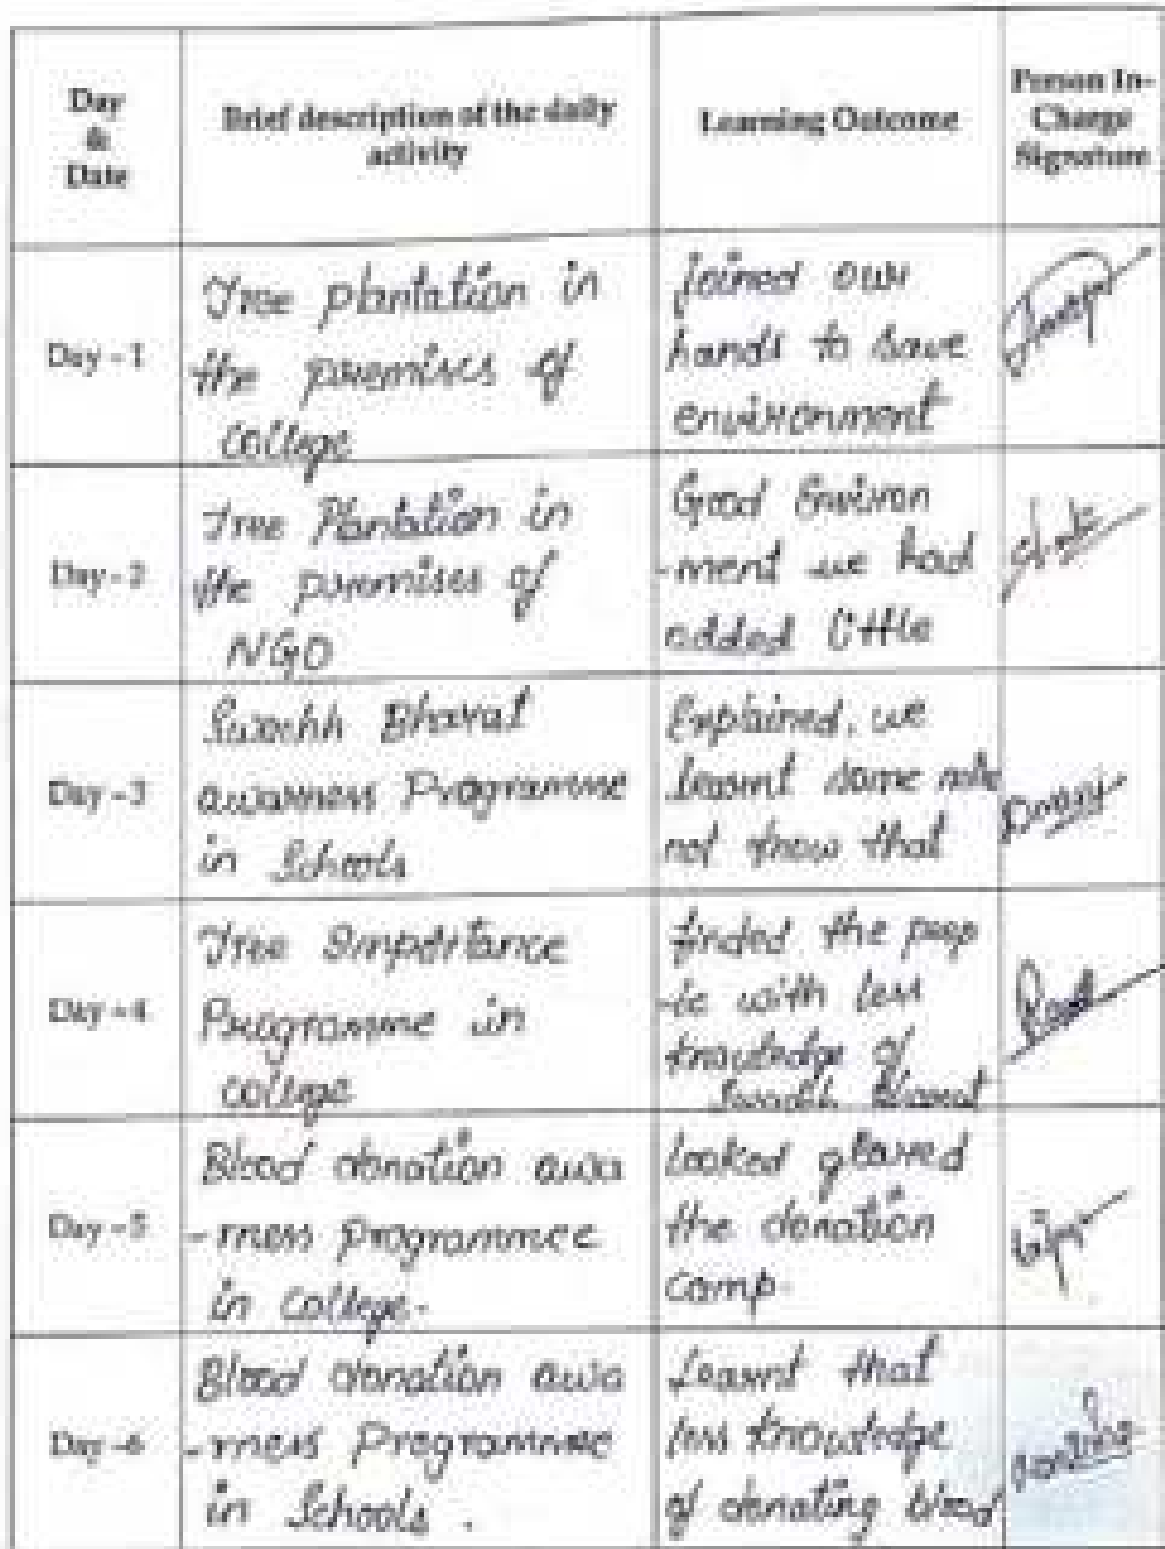 Day
&
Date
Brief description of the daily
activity
Learning Outcome
Person In-
Charge
Signature
Day - 1
Tree plantation in
the premises of
college
joined our
hands to save
environment
Day - 2
Tree Plantation in
the premises of
NGO
Good Environ
-ment we had
added little
Day - 3
Swachh Bharat
awarness Programme
in Schools
Explained, we
learnt some
not know that
Day - 4
Tree Importance
Programme in
college
finded the peop
-le with less
knowledge of
Swachh Bharat
Day - 5
Blood donation awa
-rness programmee
in college-
looked
the donation
camp.
Day - 6
Blood donation awa
-rness Programme
in Schools .
Learnt that
less knowledge
of donating blood